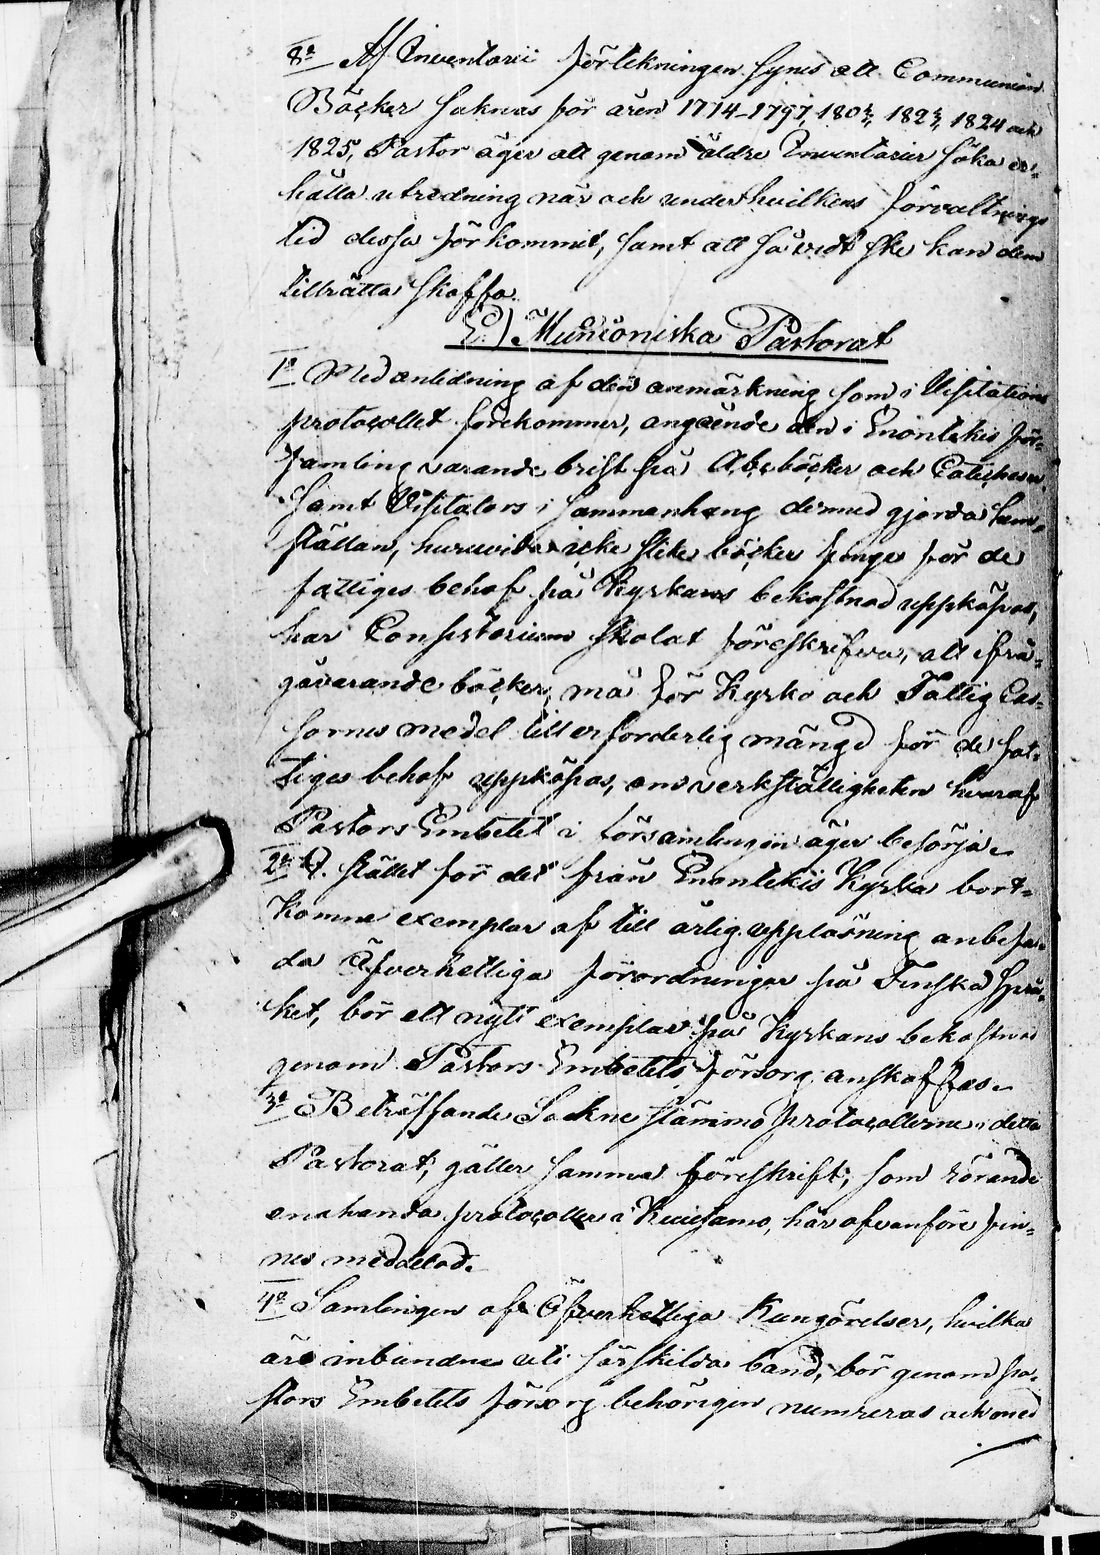 8º Af Inventarii förtekningen synes att Communion
Böcker saknas för åren 1774–1797, 1802, 1823, 1824 och
1825, Pastor äger att genom äldre Inventarier söka er-
hålla utredning när och under hvilkens förvaltnings
tid dessa förkommit, samt att såvidt ske kan dem
tillrätta skaffa.
E.) Muonioniska Pastorat
1º Med anledning af den anmärkning som i Visitations
protocollet förekommer, angående den i Enontekis för-
samling varande brist på Abcböcker och Catecheser,
samt Visitators i sammanhang dermed gjorda hem-
ställan, huruvida icke slike böcker finge för de
fattiges behof på Kyrkans bekostnad uppköpas,
har Consistorium skolat föreskrifva, att ifrå-
gavarande böcker må för Kyrko och Fattig Cas-
sornes medel till erforderlig mängd för de fat-
tiges behof uppköpas, om verkställigheten hvaraf
Pastors Embetet i församlingen äger besörja.
2º I stället för det från Enontekis Kyrka bort-
komne exemplar af till årlig uppläsning anbefal-
da Öfverhetliga förordningar på Finska språ-
ket, bör ett nytt exemplar på Kyrkans bekostnad
genom Pastors Embetets försorg anskaffas.
3º Beträffande Sockne stämmo protocollerne i detta
Pastorat, gäller samma föreskrift, som rörande
enahanda protocoller i Kuusamo, här ofvanföre fin-
nes meddelad.
4º Samlingen af Öfverhetliga Kungörelser, hvilka
äro inbundne uti särskilda band, bör genom Pa-
stors Embetets försorg behörigen numreras och med